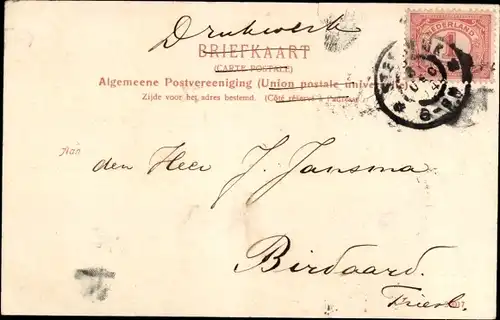 Drukwerk
NEDERLAND
1
BRIEFKAART
(CARTE POSTALE)
Algemeene Postvereeniging (Union postale universelle)
Zijde voor het adres bestemd. (Côté réservé à l'adresse)
Aan
den Heer J. Jansma
Birdaard.
Friesl.